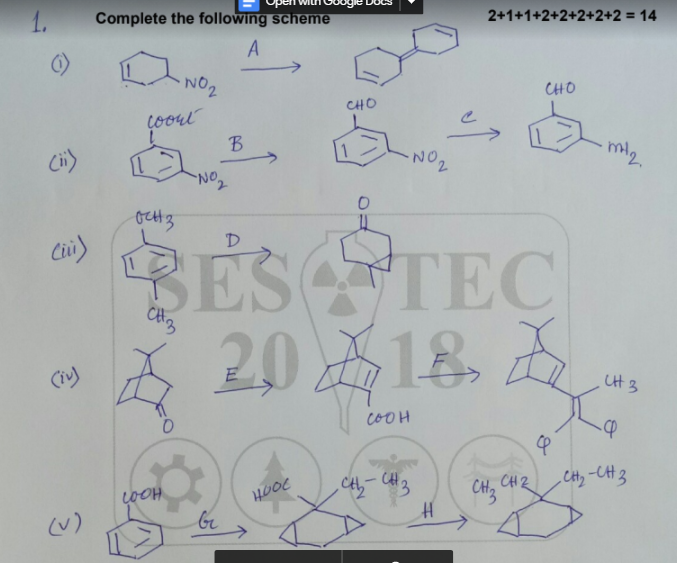 Open with Google Docs
1. Complete the following scheme 2+1+1+2+2+2+2+2 = 14
(i) NO2 A
(ii) COOEt NO2 B CHO NO2 C CHO NH2
(iii) OCH3 CH3 D O
(iv) O E COOH F CH3 φ φ
(v) COOH G HOOC CH2-CH3 H CH3 CH2 CH2-CH3
SES TEC
2018